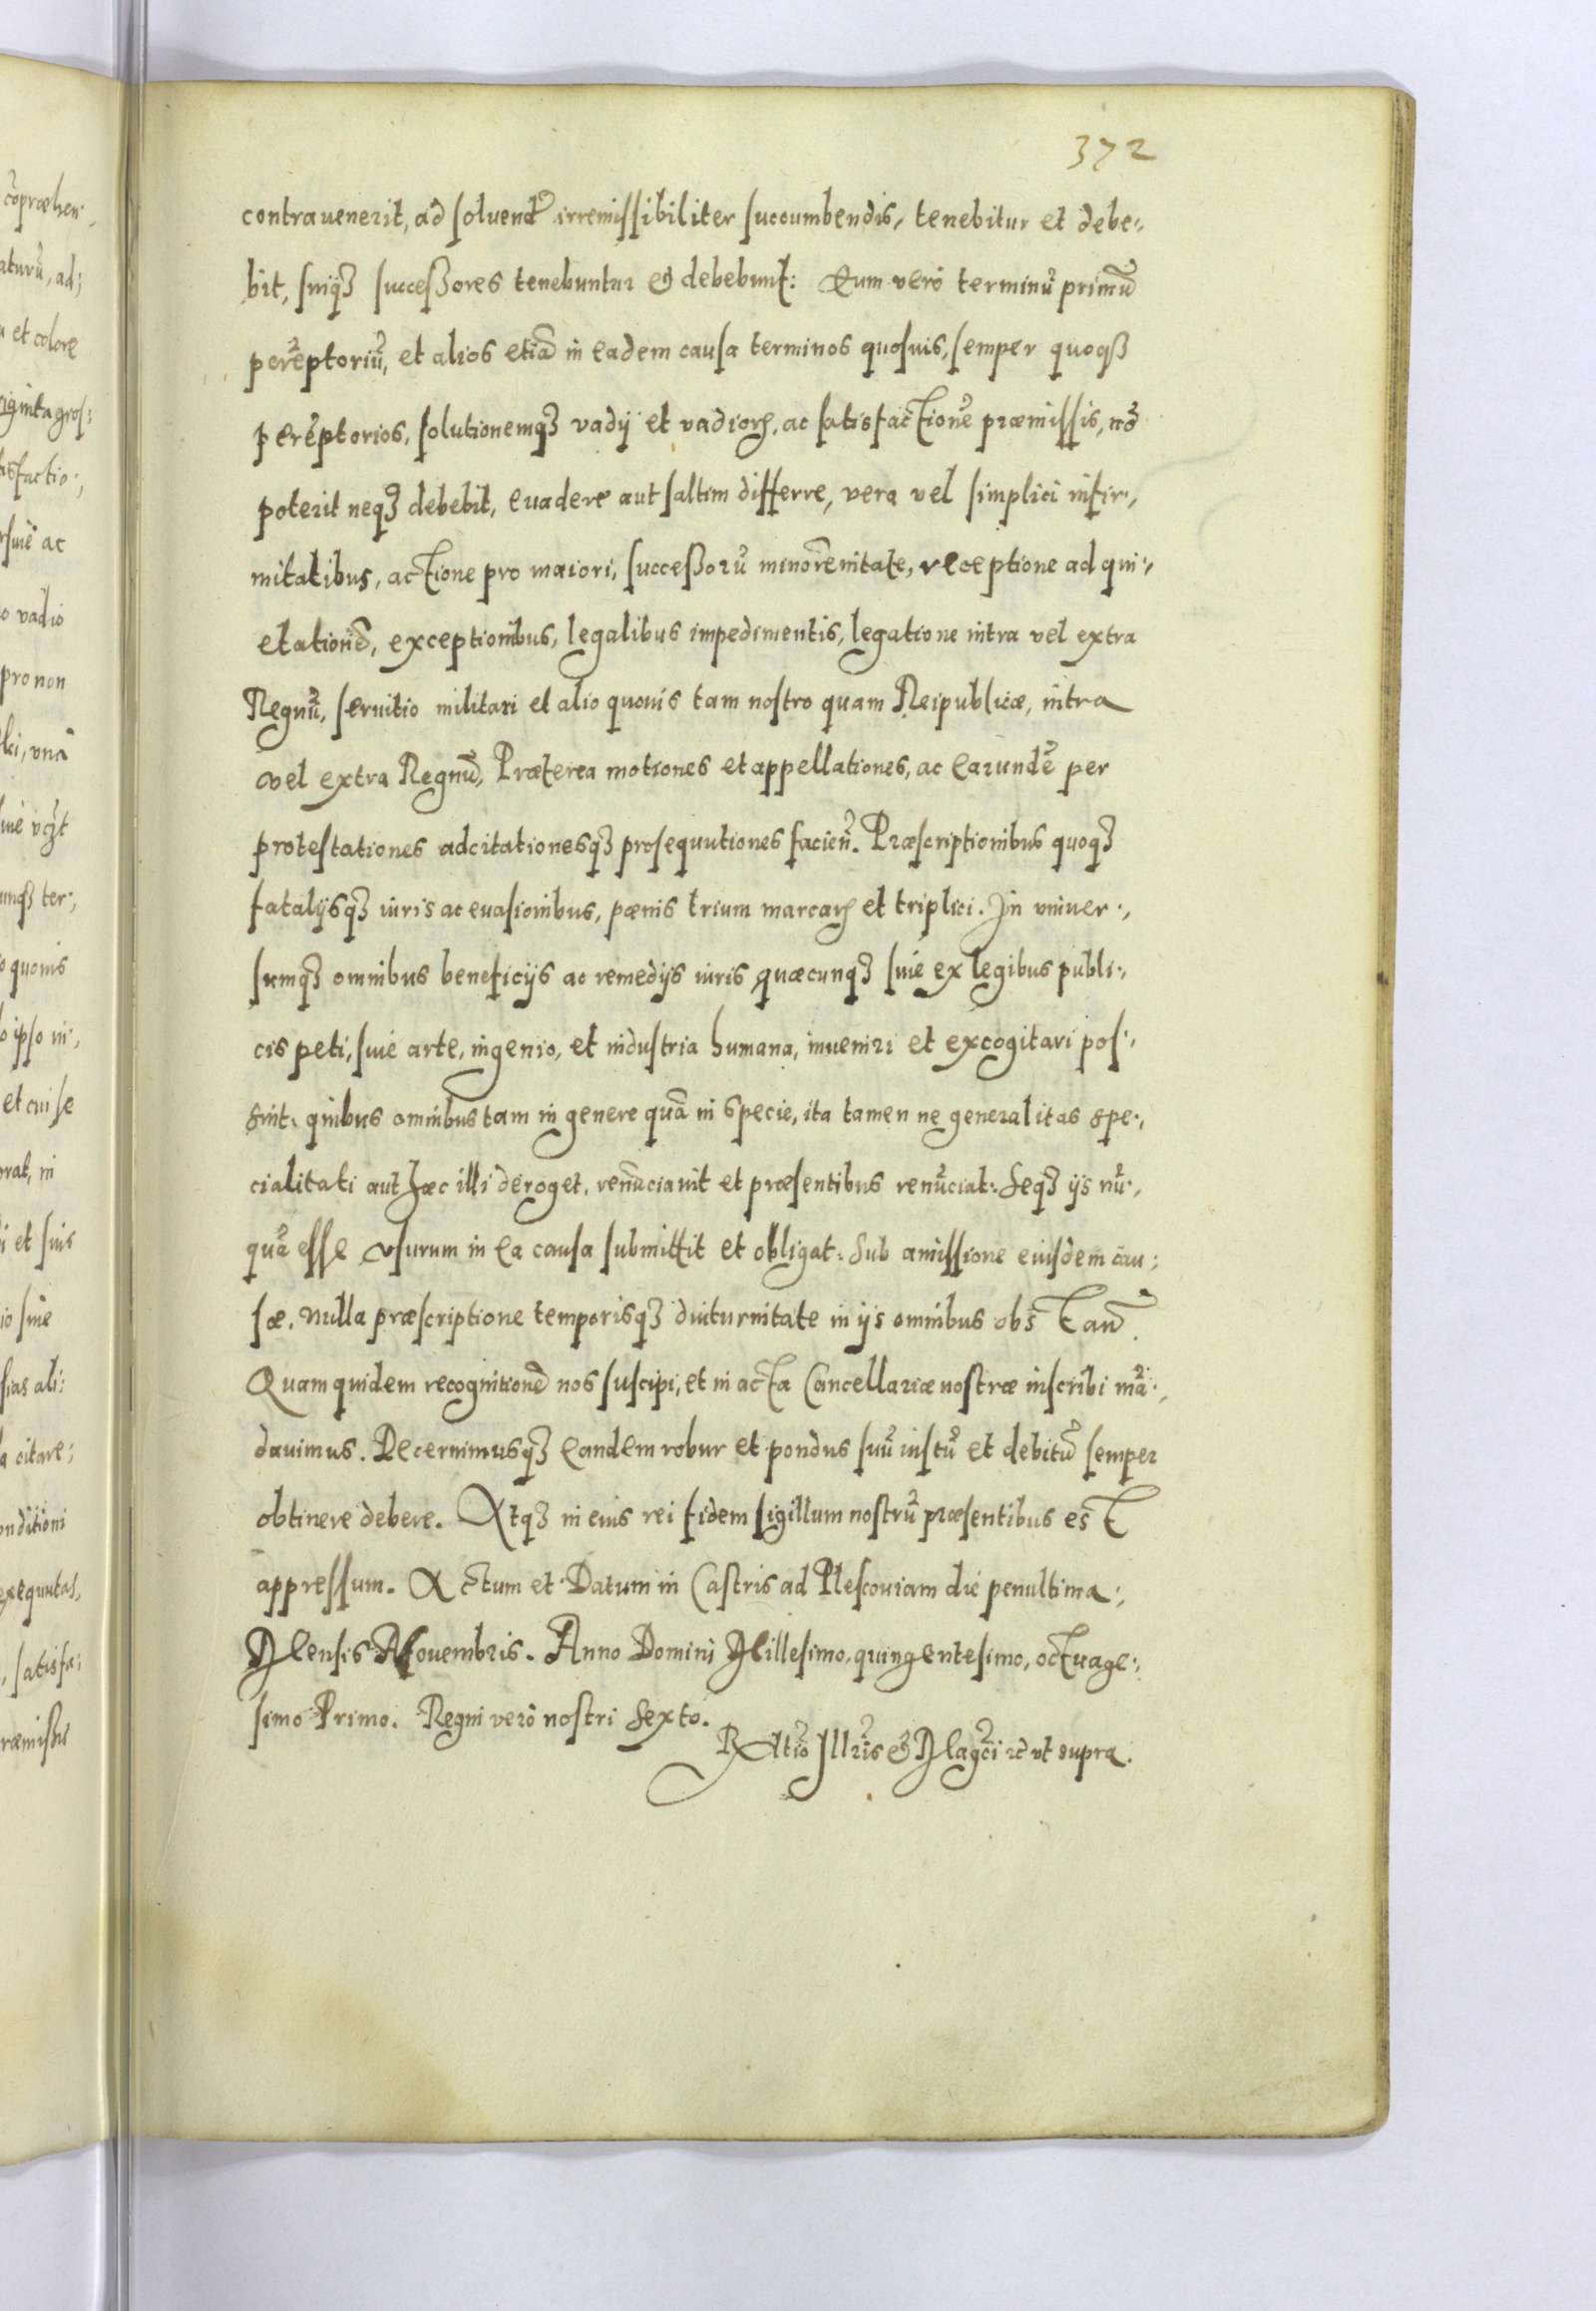 372
contrauenerit, ad soluend irremissibiliter succumbendis, tenebitur et debe:,
bit, suiq3 successores tenebuntur et debebunt: Eum vero terminũ primũ
perẽptoriũ, et alios etiã in eadem causa terminos quosuis, semper quoq3
perẽptorios, solutionemq3 vadij et vadiorꝝ, ac satisfactionẽ præmissis, nõ
poterit neq3 debebit, euadere aut saltim differre, vera vel simplici infir:,
mitatibus, actione pro maiori, successorũ minorẽnitate, receptione ad qui:,
etationẽ, exceptionibus, legalibus impedimentis, legatione intra vel extra
Regnũ, seruitio militari et alio quouis tam nostro quam Reipublicæ, intra
vel extra Regnũ, Præterea motiones et appellationes, ac earundẽ per
protestationes adcitationesq3 prosequutiones facieñ. Præscriptionibus quoq3
fatalijsq3 iuris ac euasionibus, pœnis trium marcarꝝ et triplici. In vniuer:,
sumq3 omnibus beneficijs ac remedijs iuris quæcunq3 siue ex legibus publi:,
cis peti, siue arte, ingenio, et industria humana, inueniri et excogitari pos:,
sint. quibus omnibus tam in genere quã in specie, ita tamen ne generalitas spe:,
cialitati aut hæc illi deroget, renũciauit et præsentibus renũciat: Seq3 ijs nũ:,
quã esse vsurum in ea causa submittit et obligat: Sub amissione eiusdem cau:
sæ. Nulla præscriptione temporisq3 diuturnitate in ijs omnibus obstañ.
Quam quidem recognitionẽ nos suscipi, et in acta Cancellariæ nostræ inscribi mã:,
dauimus. Decernimusq3 eandem robur et pondus suũ iustũ et debitũ semper
obtinere debere. Atq3 in eius rei fidem sigillum nostrũ præsentibus est
appressum. Actum et Datum in Castris ad Plescouiam die penultima:,
Mensis Nouembris. Anno Domini Millesimo, quingentesimo, octuage:,
simo Primo. Regni vero nostri Sexto.
Rltio Illris et Magci ꝛc ut supra.